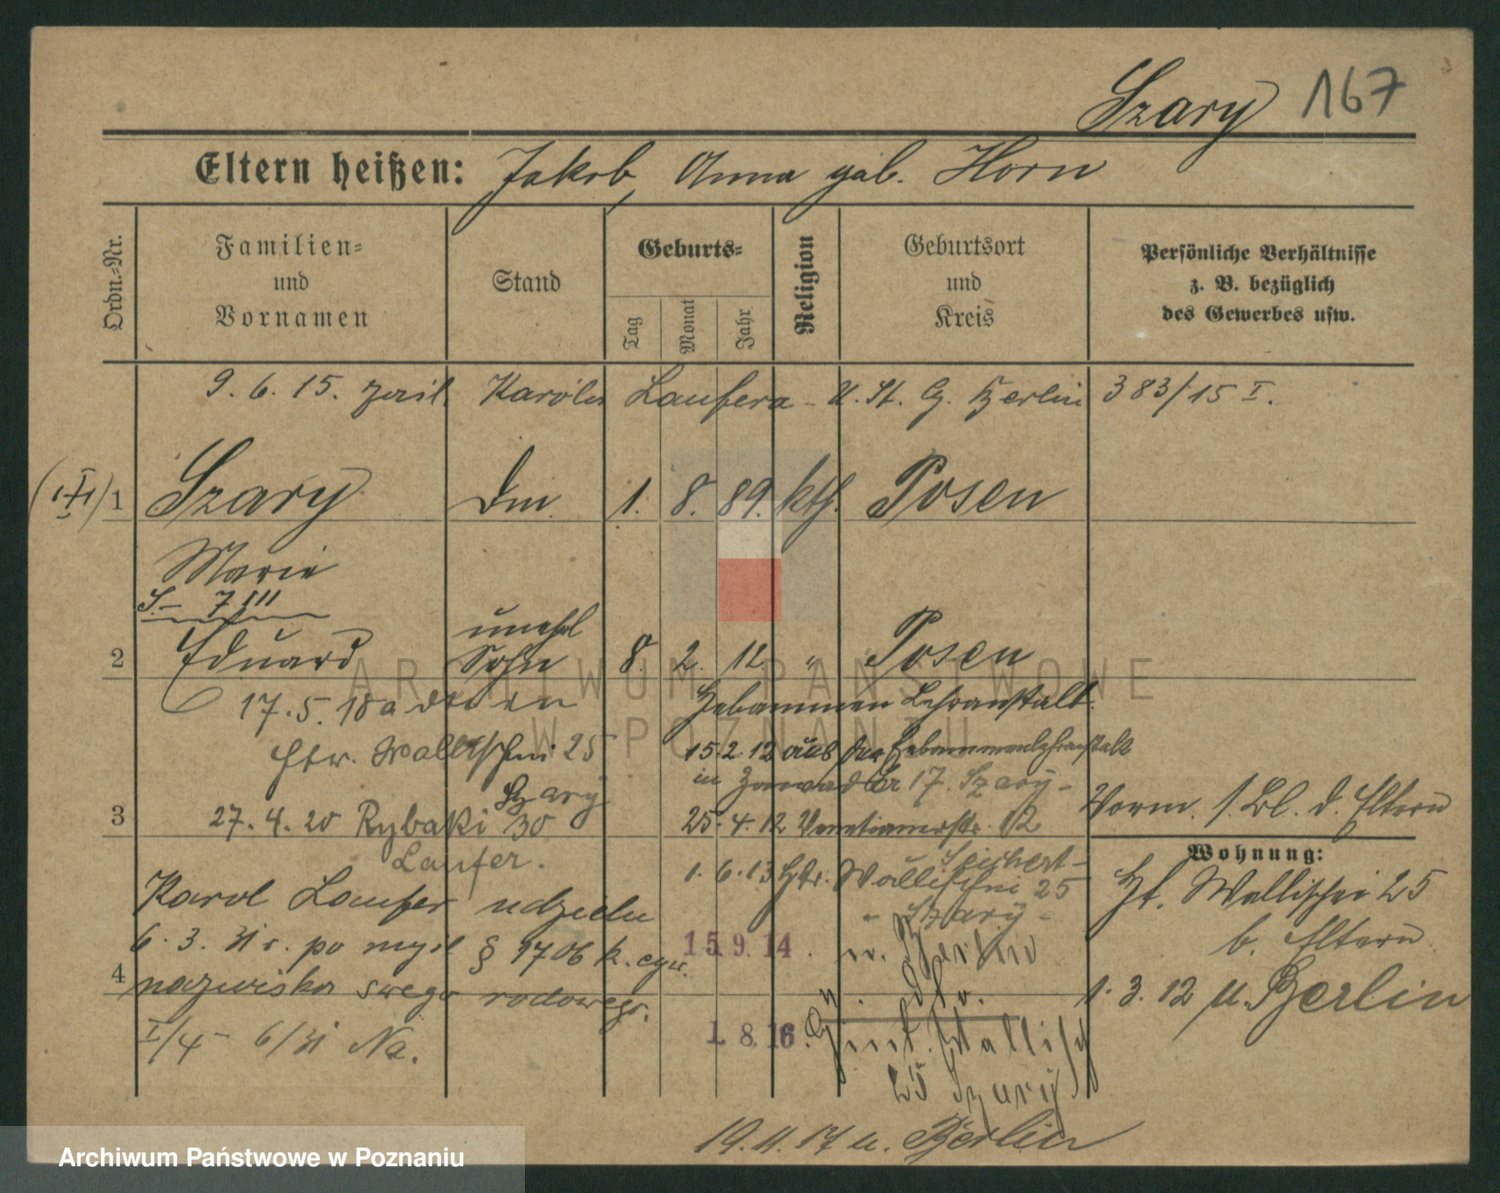 Szary 167
Eltern heißen: Jakob, Anna geb. Horn
Ordn.-Nr.
Familien-
und
Vornamen
Stand
Geburts-
Tag
Monat
Jahr
Religion
Geburtsort
und
Kreis
Persönliche Verhältnisse
z. B. bezüglich
des Gewerbes usw.
9. 6. 15. Karola Laufera - U. St. G. Berlin 383/15 I.
1 Szary Dm. 1. 8. 89. kth. Posen
Marie
unehel
2 Eduard Sohn 8. 2. 12 " Posen
17. 5. 18 Hebammen Lehranstalt
Htr. Wallischei 25 15. 2. 12 aus der Hebammenlehranstalt
in 17. Szary -
Szary
3 27. 4. 20 Rybaki 30 25. 4. 12 Venetianerstr. 12
Vorm. 1. Bl. d. Eltern
Laufer.
1. 6. 13 Htr. Wallischei 25
- Szary -
Wohnung:
Hf. Wallischei 25
b. Eltern
1. 3. 12 u. Berlin
Karol Laufer udzielił
6. 3. 31 r. po myśl § 1706 k. cyw.
4 nazwiska swego rodowego.
I/4 - 6/31 Na.
15 9. 14. n. Berlin
1. 8. 16. Hint. Wallisch
25 Szary
19. 11. 17 u. Berlin
ARCHIWUM PAŃSTWOWE
W POZNANIU
Archiwum Państwowe w Poznaniu